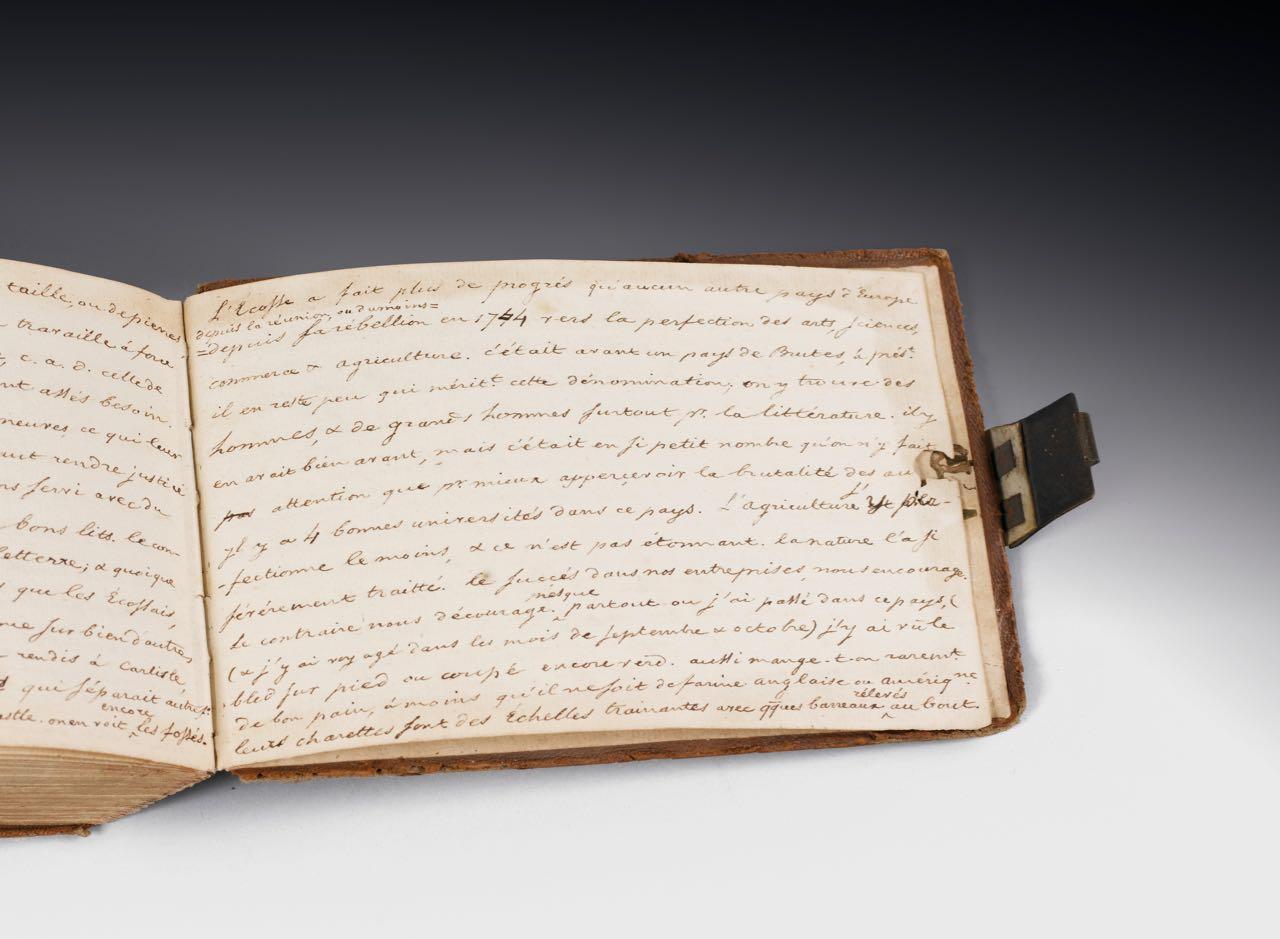 taille, ou de pierres
travaille à force
c. a. d. celle de
ont assés besoin.
ce qui leur
faut rendre justice
servi avec du
bons lits. le con-
& quoique
que les Écossais,
sur bien d'autres
rendis à Carlisle
qui séparait autref.s
encore
on en voit les fossés.
L'Écosse a fait plus de progrés qu'aucun autre pays d'Europe
depuis la réunion, ou du moins=
=depuis sa rébellion en 1744 vers la perfection des arts, sciences,
commerce & agriculture. c'était avant un pays de Brutes, à prés.t
il en reste peu qui mérit.t cette dénomination; on y trouve des
hommes, & de grands hommes surtout p.r la littérature. il y
en avait bien avant, mais c'était en si petit nombre qu'on n'y fait
pas attention que p.r mieux appercevoir la brutalité des au
yl y a 4 bonnes universités dans ce pays. L'agriculture s'y per-
-fectionne le moins, & ce n'est pas étonnant. la nature l'a si
férérement traitté. le succés dans nos entreprises, nous encourage.
le contraire nous décourage. presque partout ou j'ai passé dans ce pays, (
(& j'y ai voyagé dans les mois de septembre & octobre) j'y ai vû le
bled sur pied ou coupé encore verd. aussi mange-t-on rarem.t
de bon pain, à moins qu'il ne soit de farine anglaise ou amériqne
relevés
leurs charettes sont des Échelles trainantes avec qques barreaux au bout.